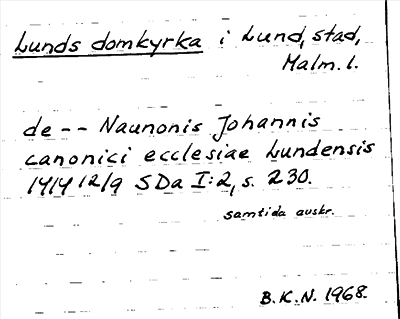 Lunds domkyrka i Lund, stad,
Malm. l.
de -- Naunonis Johannis
canonici ecclesiae Lundensis
1414 12/9 SDa I:2, s. 230.
samtida avskr.
B.K.N. 1968.